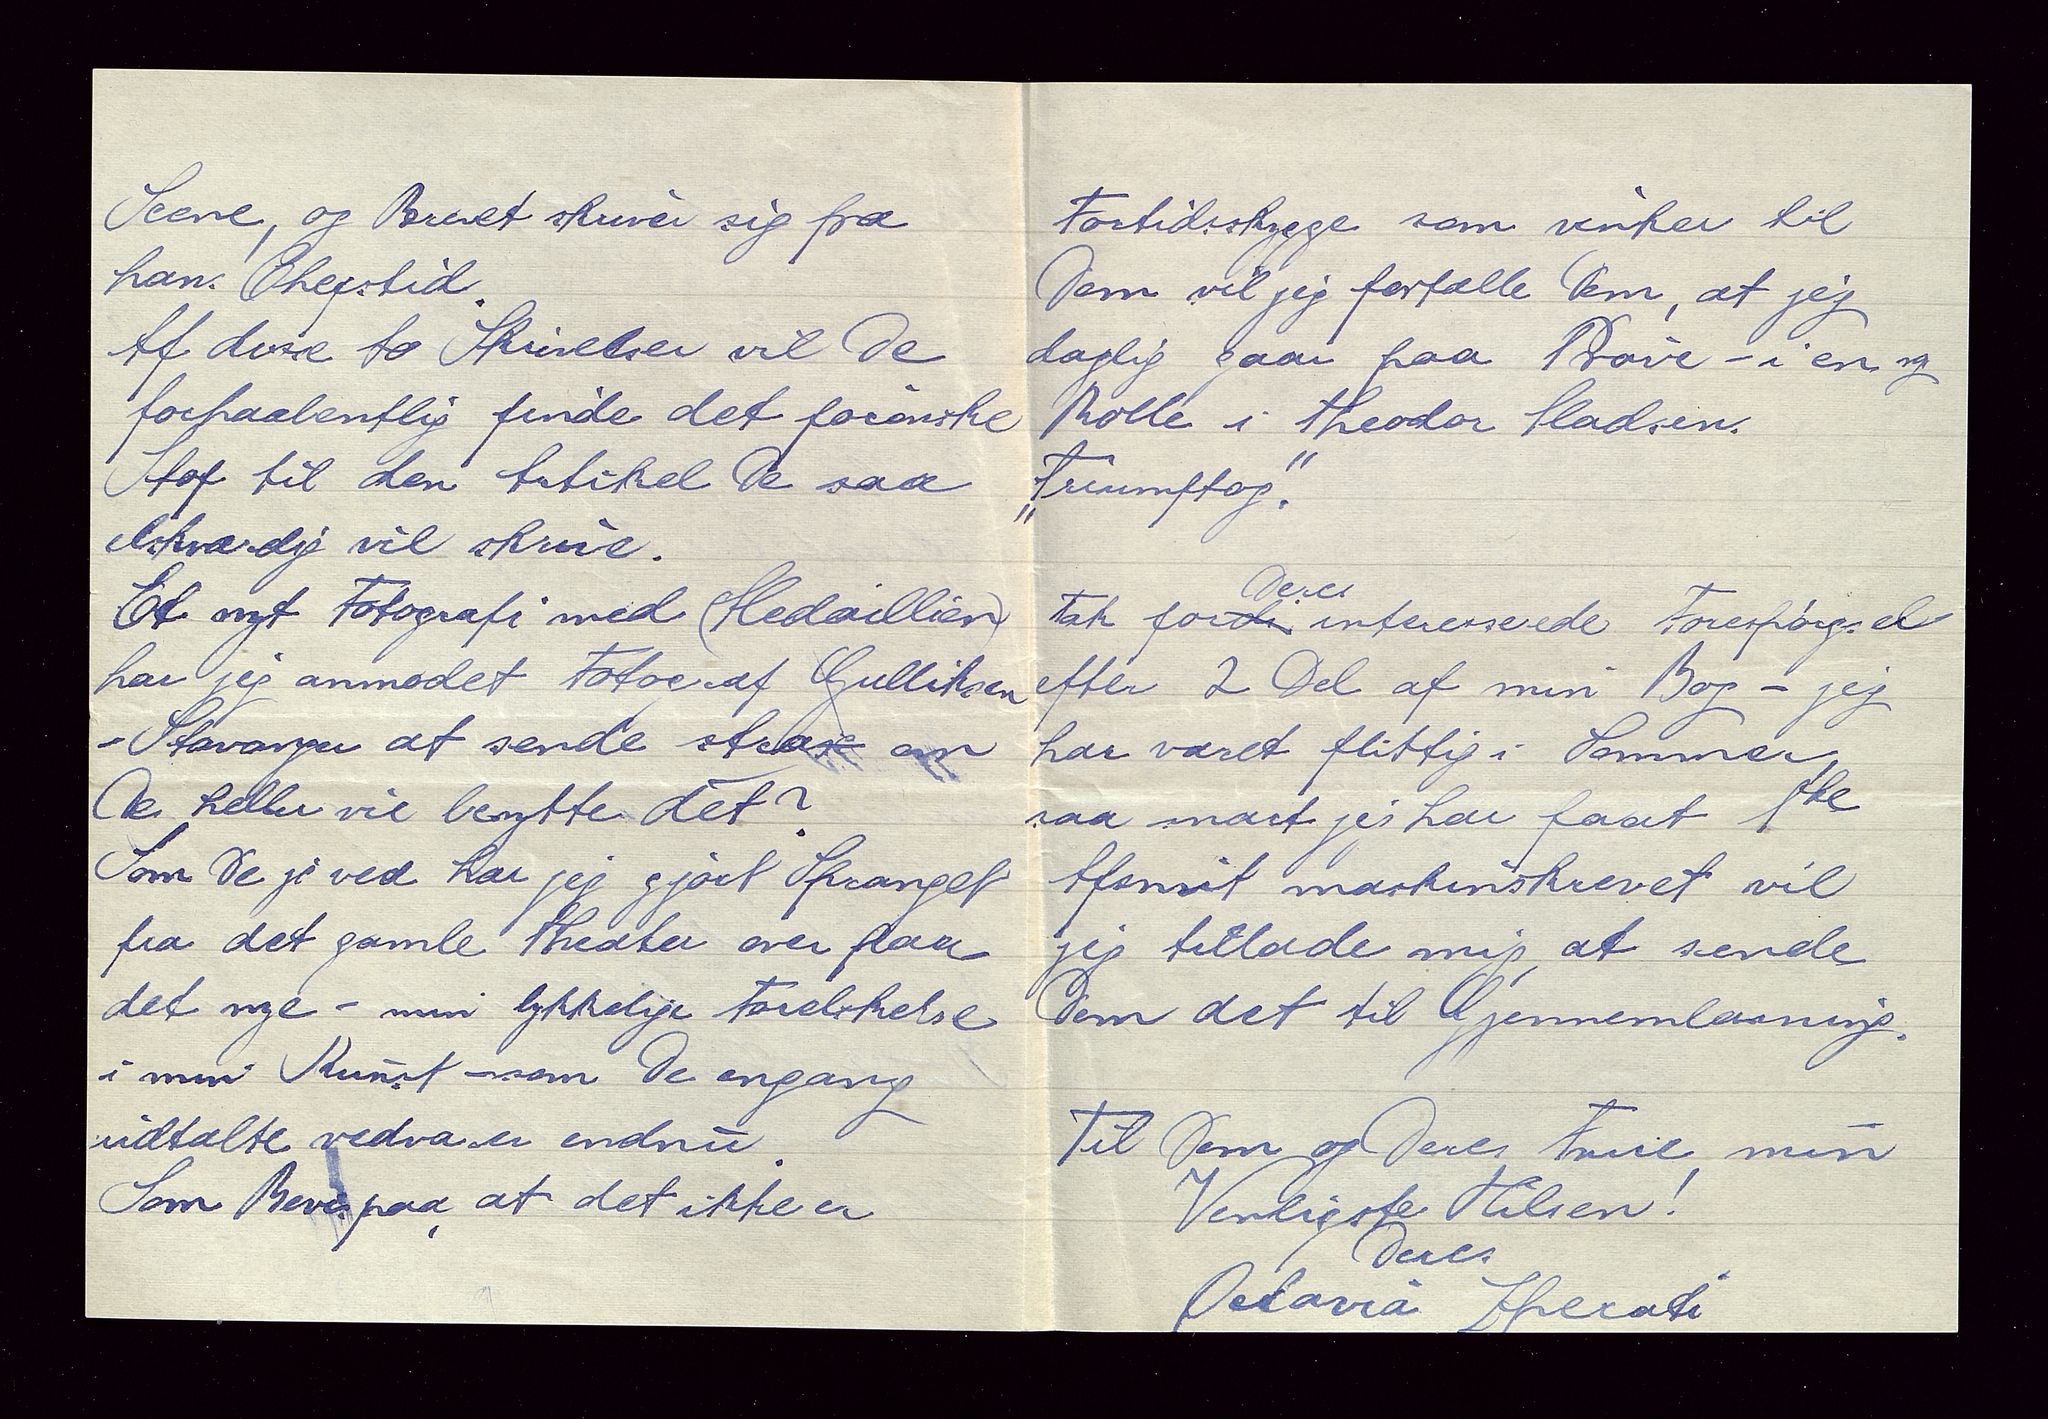 Scene, og Brevet skriver sig fra
hans Chefstid.
Af disse to Skrivelser vil De
forhaabentlig finde det forönske
Stof til den Artikel De saa
elskværdig vil skrive.
Et nyt Fotografi med (Medaillien)
har jeg anmodet Fotograf Gulliksen
- Stavanger at sende strax om
De heller vil benytte det?
Som De jo ved har jeg gjört Spranget
fra det gamle Theater over paa
det nye - min lykkelige Forelskelse
i min Kunst - som De engang
udtalte vedvarer endnu.
Som Bevis paa, at det ikke er
Fortidsskygge som vinker til
Dem vil jeg fortælle Dem, at jeg
daglig gaar paa Pröve - i en ny
Rolle i Theodor Madsens
"Triumftog".
Tak for Deres interesserede Forespörgsel
efter 2 Del af min Bog - jeg
har været flittig i Sommer,
saa snart jeg har faaet 1ste
Afsnit maskinskrevet vil
jeg tillade mig, at sende
Dem det til Gjennemlæsning.
Til Dem og Deres Frue min
Venligste Hilsen!
Deres
Octavia Sperati